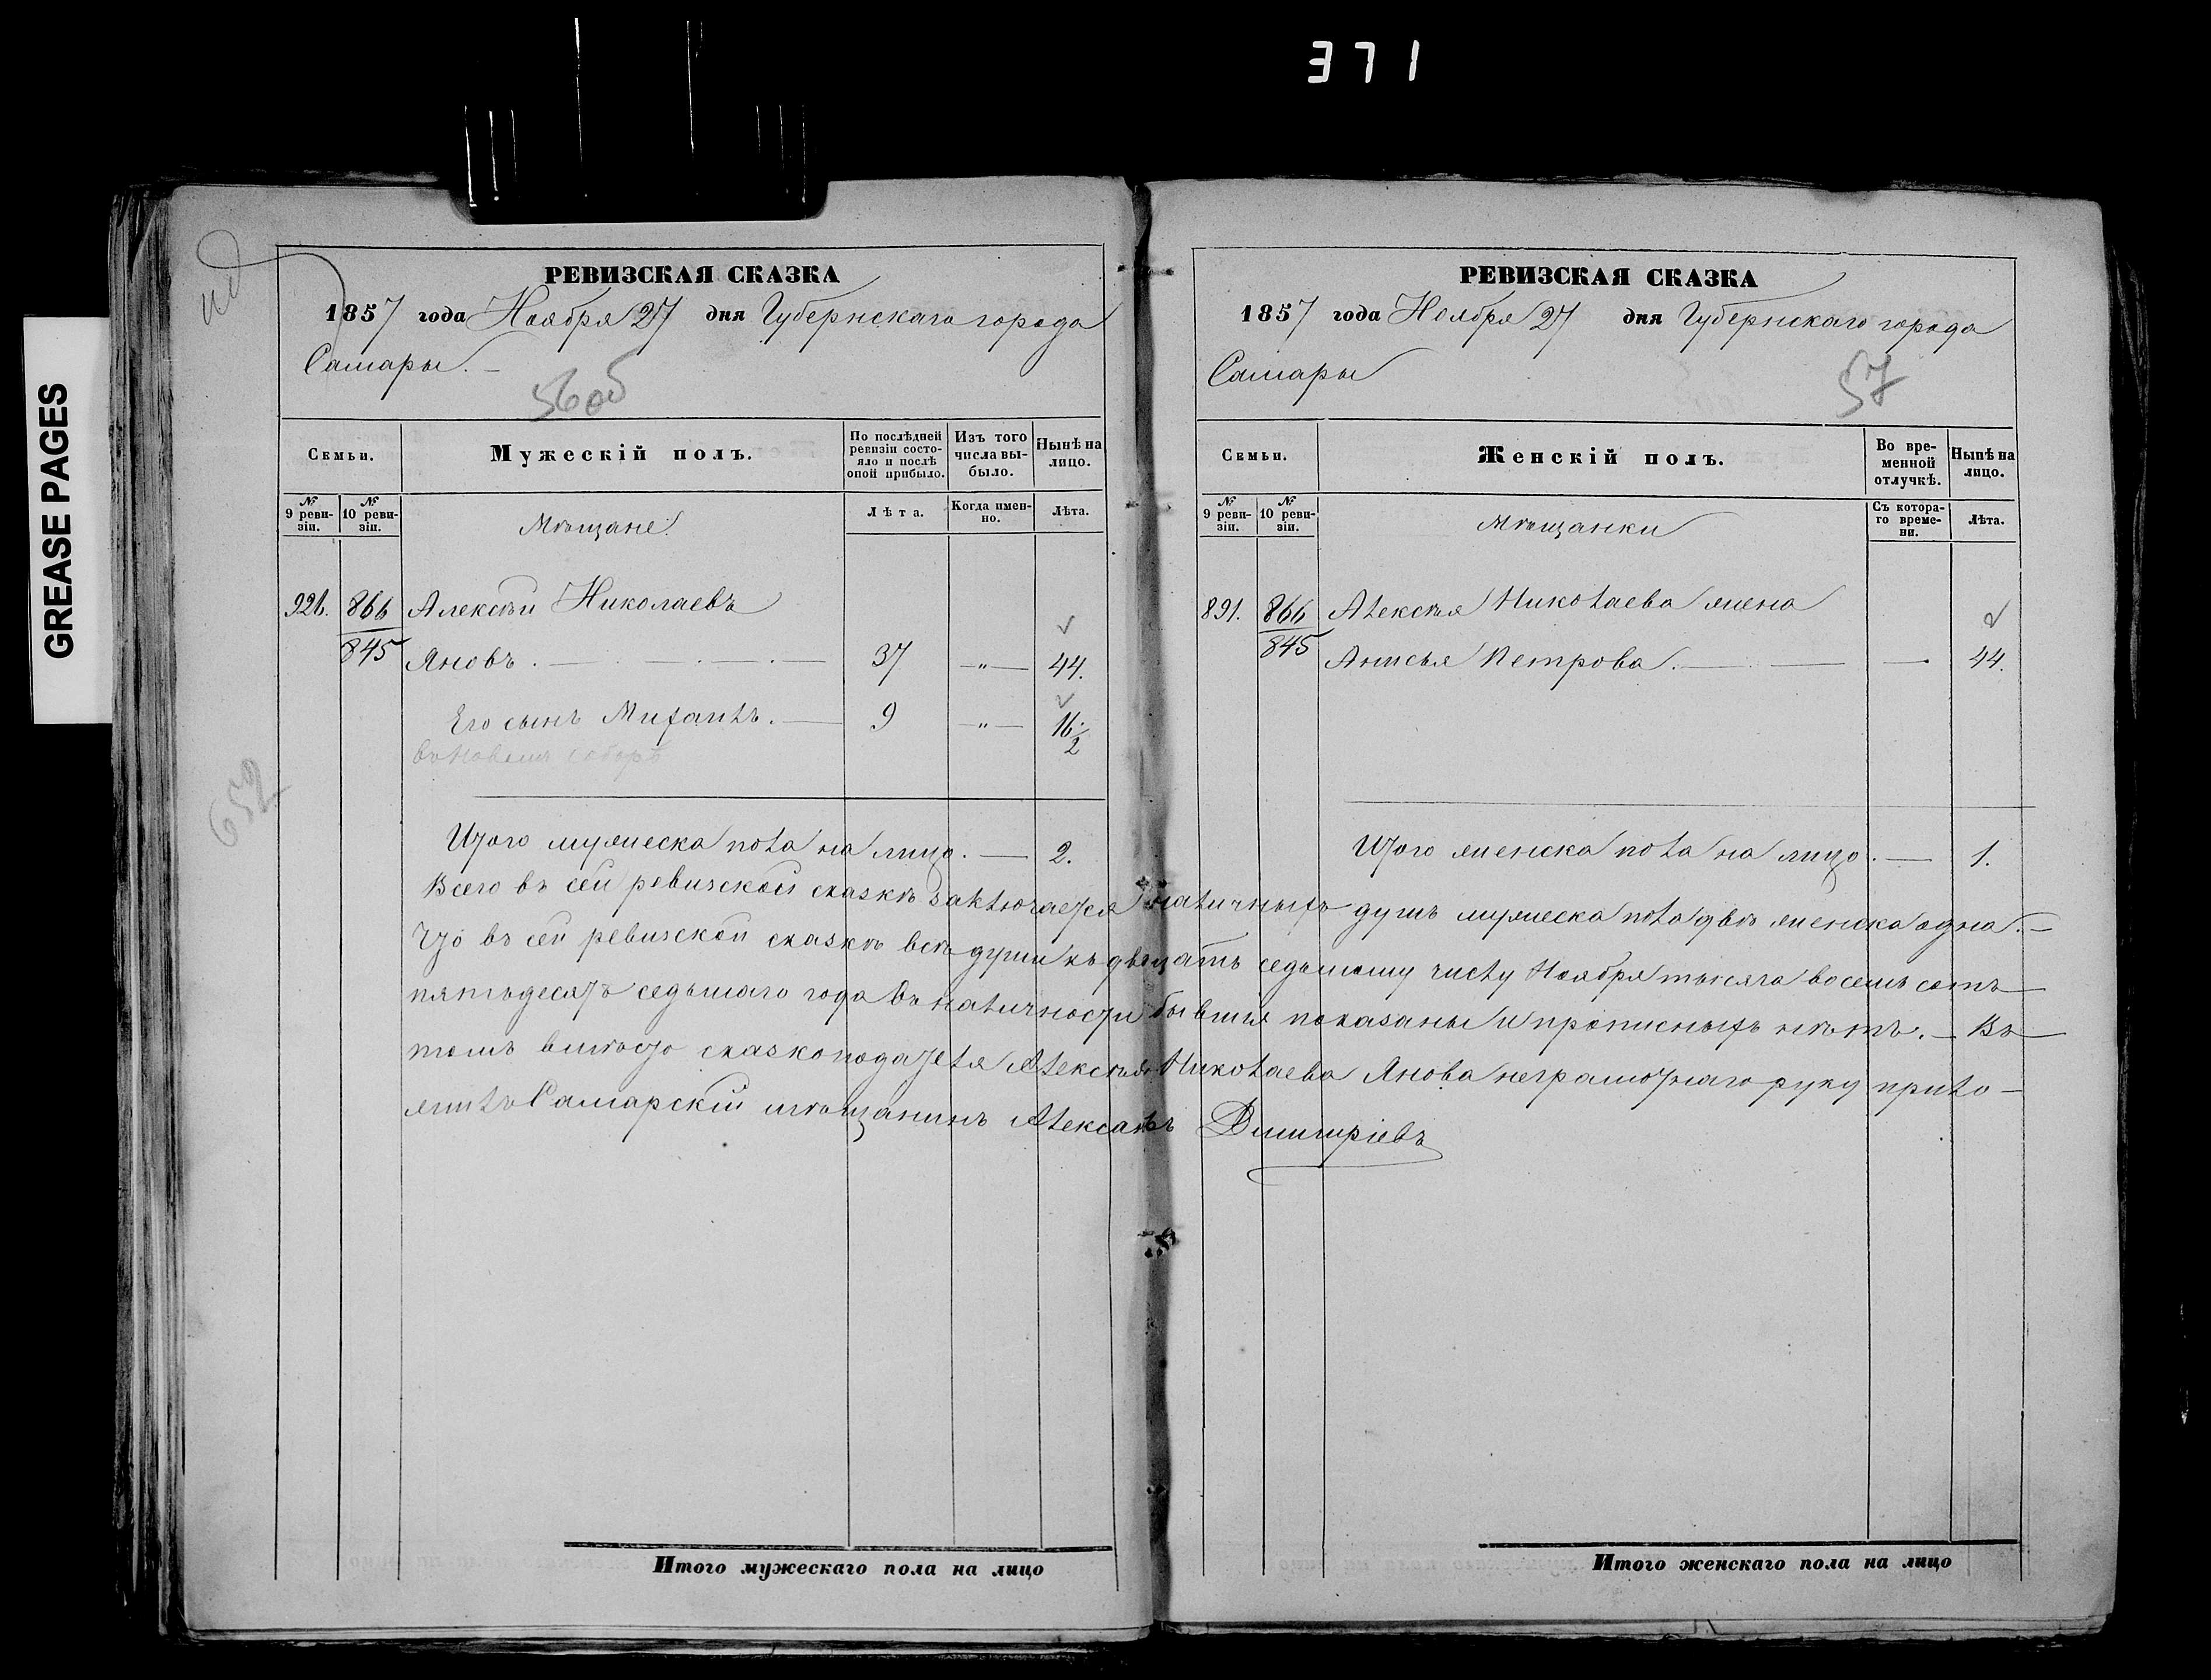 371
GREASE PAGES
РЕВИЗСКАЯ СКАЗКА
1857 года Ноября 27 дня Губернскаго города
Самары. —
56об
Семьи.
Мужескій полъ.
По послѣдней ревизіи состояло и послѣ оной прибыло.
Изъ того числа выбыло.
Нынѣ на лицо.
№ 9 ревизіи.
№ 10 ревизіи.
Мѣщане.
Лѣта.
Когда именно.
Лѣта.
926. 866 Алексѣй Николаевъ
845 Яновъ. — 37 —„— 44.
Его сынъ Михаилъ. — 9 —„— 16 1/2
въ Новомъ соборѣ
652
Итого мужеска пола на лицо. — 2.
РЕВИЗСКАЯ СКАЗКА
1857 года Ноября 27 дня Губернскаго города
Самары
57
Семьи.
Женскій полъ.
Во временной отлучкѣ.
Нынѣ на лицо.
№ 9 ревизіи.
№ 10 ревизіи.
Мѣщанки
Съ котораго времени.
Лѣта.
891. 866 Алексѣя Николаева жена
845 Анисья Петрова. — — 44.
Итого женска пола на лицо. — 1.
Всего въ сей ревизской сказкѣ заключается наличныхъ душъ мужеска пола двѣ женска одна. —
Что въ сей ревизской сказкѣ всѣ души къ двадцать седьмому числу Ноября тысяча восемь сотъ
пятьдесятъ седьмаго года въ наличности бывшія показаны и прописныхъ нѣтъ. — Въ
томъ вмѣсто сказкоподателя Алексѣя Николаева Янова неграмотнаго руку прило-
жилъ Самарскій мѣщанинъ Александръ Димитріевъ
Итого мужескаго пола на лицо
Итого женскаго пола на лицо